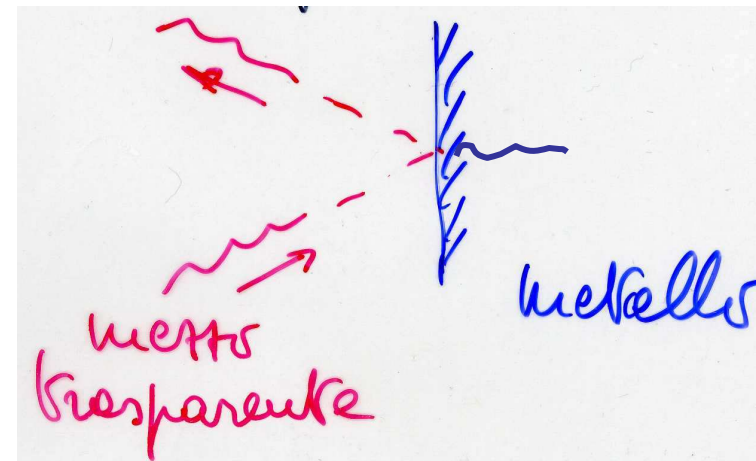 metallo
mezzo
trasparente